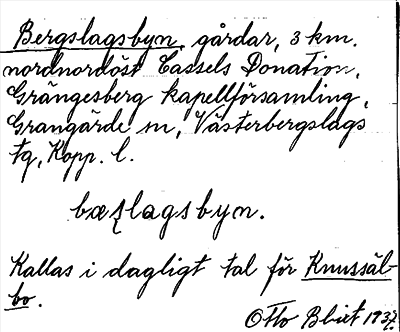 Bergslagsbyn, gårdar, 3 km.
nordnordöst Cassels Donation,
Grängesberg kapellförsamling,
Grangärde sn, Västerbergslags
tg, Kopp. l.
bæʂlagsbyn.
Kallas i dagligt tal för Knussäl-
bo.
Otto Blixt 1937.